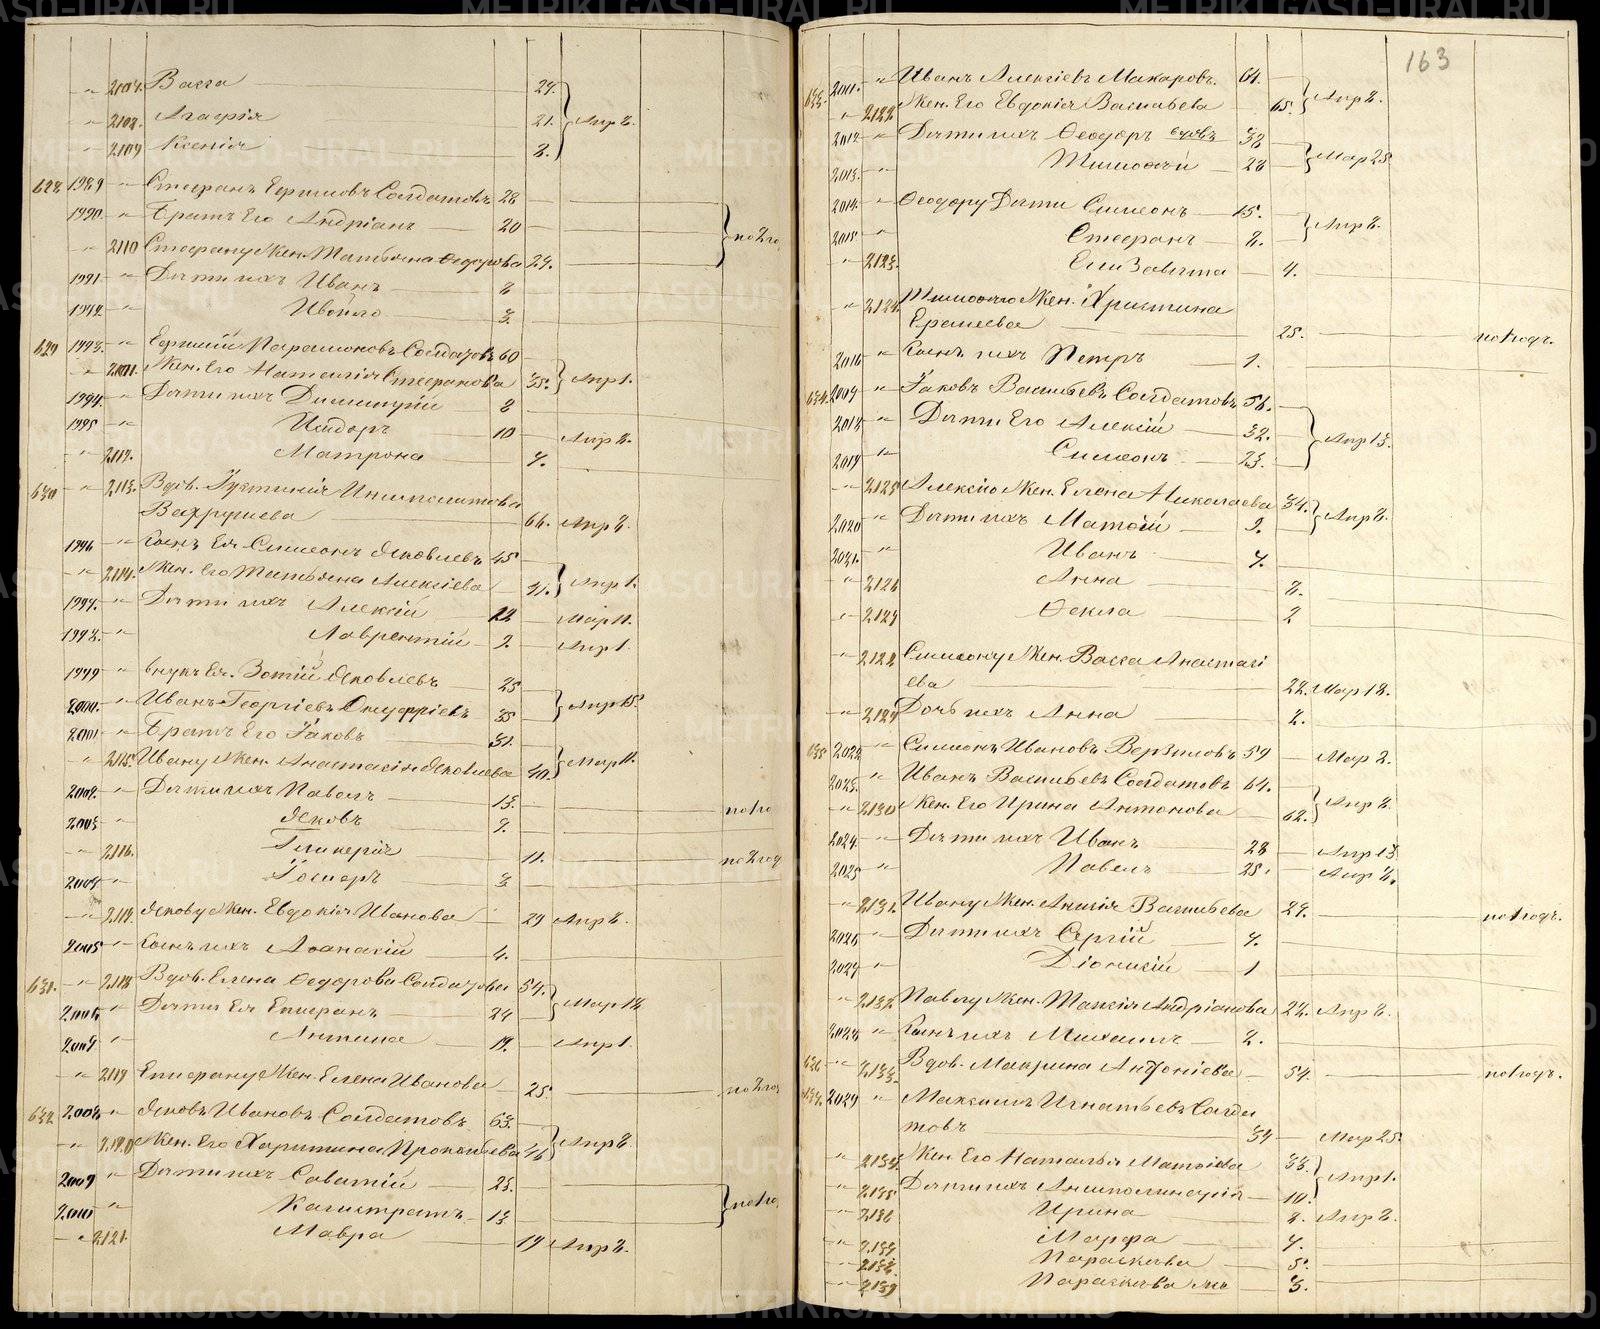 163
Васса 24.
Агафія 21. Апр 8.
Ксенія 8.
628 1989 Стефанъ Ефимовъ Солдатовъ 28
1990. Братъ Его Андріанъ 20
2110 Стефану Жен. Татьяна Ѳедорова 24. по 2 го
1991 Дѣти ихъ Иванъ 8
1992. 3.
629 1993. Парамоновъ Солдатовъ 60
Жен. Его Наталія Стефанова 35. Апр 1.
1994. Дѣти ихъ Димитрій 8
1995 Исидоръ 10 Апр 8.
Матрона 4.
630 2113. Вдов. Іустинія Ипполитова
Вахрушева 66. Апр 8.
1996 Сынъ Ея Симеонъ Яковлевъ 45
2114. Жен. Его Татьяна Алексіева 41. Апр 1.
1997. Дѣти ихъ Алексій 22 Мар 11.
1998. Лаврентій 9. Апр 1.
1999 внукъ Ея Зотій Яковлевъ 25
2000. Иванъ Георгіевъ Онуфріевъ 35 Апр 15.
2001 Братъ Его Іаковъ 31.
2115. Ивану Жен. Анастасія Яковлева 40. Мар 11.
2002. Дѣти ихъ Павелъ 13.
2003 Яковъ 9. по 1 го
2116. Гликерія 11. по 2 год
2004 3
2117. Якову Жен. Евдокія Иванова 29 Апр 8.
2005 Сынъ ихъ Аѳанасій 4.
631. 2118 Вдов. Елена Ѳедорова Солдатова 54.
2006 Дѣти Ея Епифанъ 24 Мар 18
2007 Антипа 19. Апр 1.
2119 Епифану Жен. Елена Иванова 25. по 2 го
632 2008. Яковъ Ивановъ Солдатовъ 63.
2120 Жен. Его Харитина Прокопьева 46 Апр 8.
2009 Дѣти ихъ Савватій 23.
2010 Калистратъ 13 по 1 го
2121. Мавра 19 Апр 8.
633. 2011. Иванъ Алексіевъ Макаровъ. 61.
2122 Жен. Его Евдокія Васильева 65. Апр 8.
2012 Дѣти ихъ Ѳеодоръ вдовъ 38
2013. Тимоѳей 28 Мар 25
2014. Ѳеодору Дѣти Симеонъ 15.
2015 Стефанъ 8. Апр 8.
2123. Елизавета 4.
2124. Тимоѳею Жен. Христина
25. по 1 годъ.
2016 Сынъ ихъ Петръ 1.
634. Іаковъ Васильевъ Солдатовъ 56.
2018 Дѣти Его Алексій 32. Апр 13.
2019 Симеонъ 23.
2125 Алексію Жен. Елена Николаева 34.
2020 Дѣти ихъ Матѳій 9. Апр 8.
2021. Иванъ 7.
2126 Анна 8.
2127 Ѳекла 2
2128 Симеону Жен. Васса Анастасі
ева 22. Мар 18.
2129 Дочь ихъ Анна 2.
635 2022 Симеонъ Ивановъ Верзиловъ 59 Мар 2.
2023. Иванъ Васильевъ Солдатовъ 64.
2130 Жен. Его Ирина Антонова 62. Апр 8.
2024. Дѣти ихъ Иванъ 28 Апр 13
2025 Павелъ 25. Апр 8.
2131. Ивану Жен. Анисія Васильева 24. по 1 годъ.
2026 Дѣти ихъ Сергій 4.
2027 Діонисій 1
2132. Павлу Жен. Таисія Андріанова 22. Апр 8.
2028 Сынъ ихъ Михаилъ 2.
636 2133. Вдов. Макрина Анфоніева 54. по 1 годъ.
637. 2029 Максимъ Игнатьевъ Солда
товъ 34 Мар 25.
2134. Жен. Его Наталья Матѳіева 33.
2135 Дѣти ихъ Апполинарія 10. Апр 1.
2136 Ирина 8. Апр 8.
2137 Марфа 7.
2138. Параскева 5.
2139 Параскева 3.